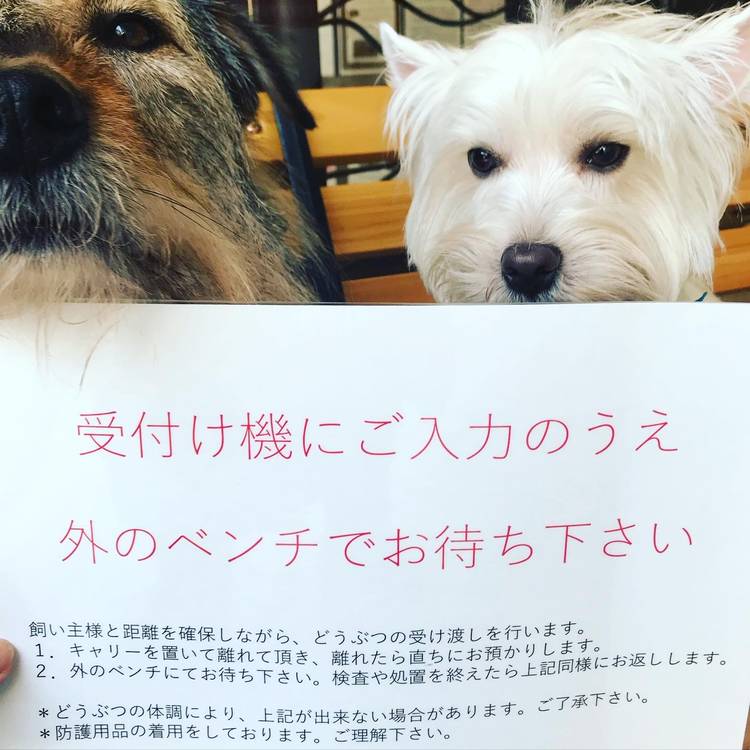 受付け機にご入力のうえ
外のベンチでお待ち下さい
飼い主様と距離を確保しながら、どうぶつの受け渡しを行います。
1．キャリーを置いて離れて頂き、離れたら直ちにお預かりします。
2．外のベンチにてお待ち下さい。検査や処置を終えたら上記同様にお返しします。
＊どうぶつの体調により、上記が出来ない場合があります。ご了承下さい。
＊防護用品の着用をしております。ご理解下さい。